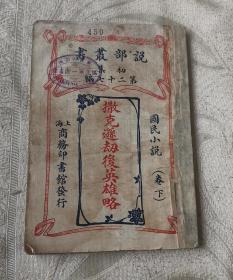 450
說部叢書
初集
第二十七編
國民小說
（卷下）
撒克遜劫後英雄略
上海商務印書館發行